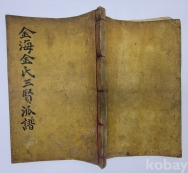 金海金氏三賢派譜
kobay